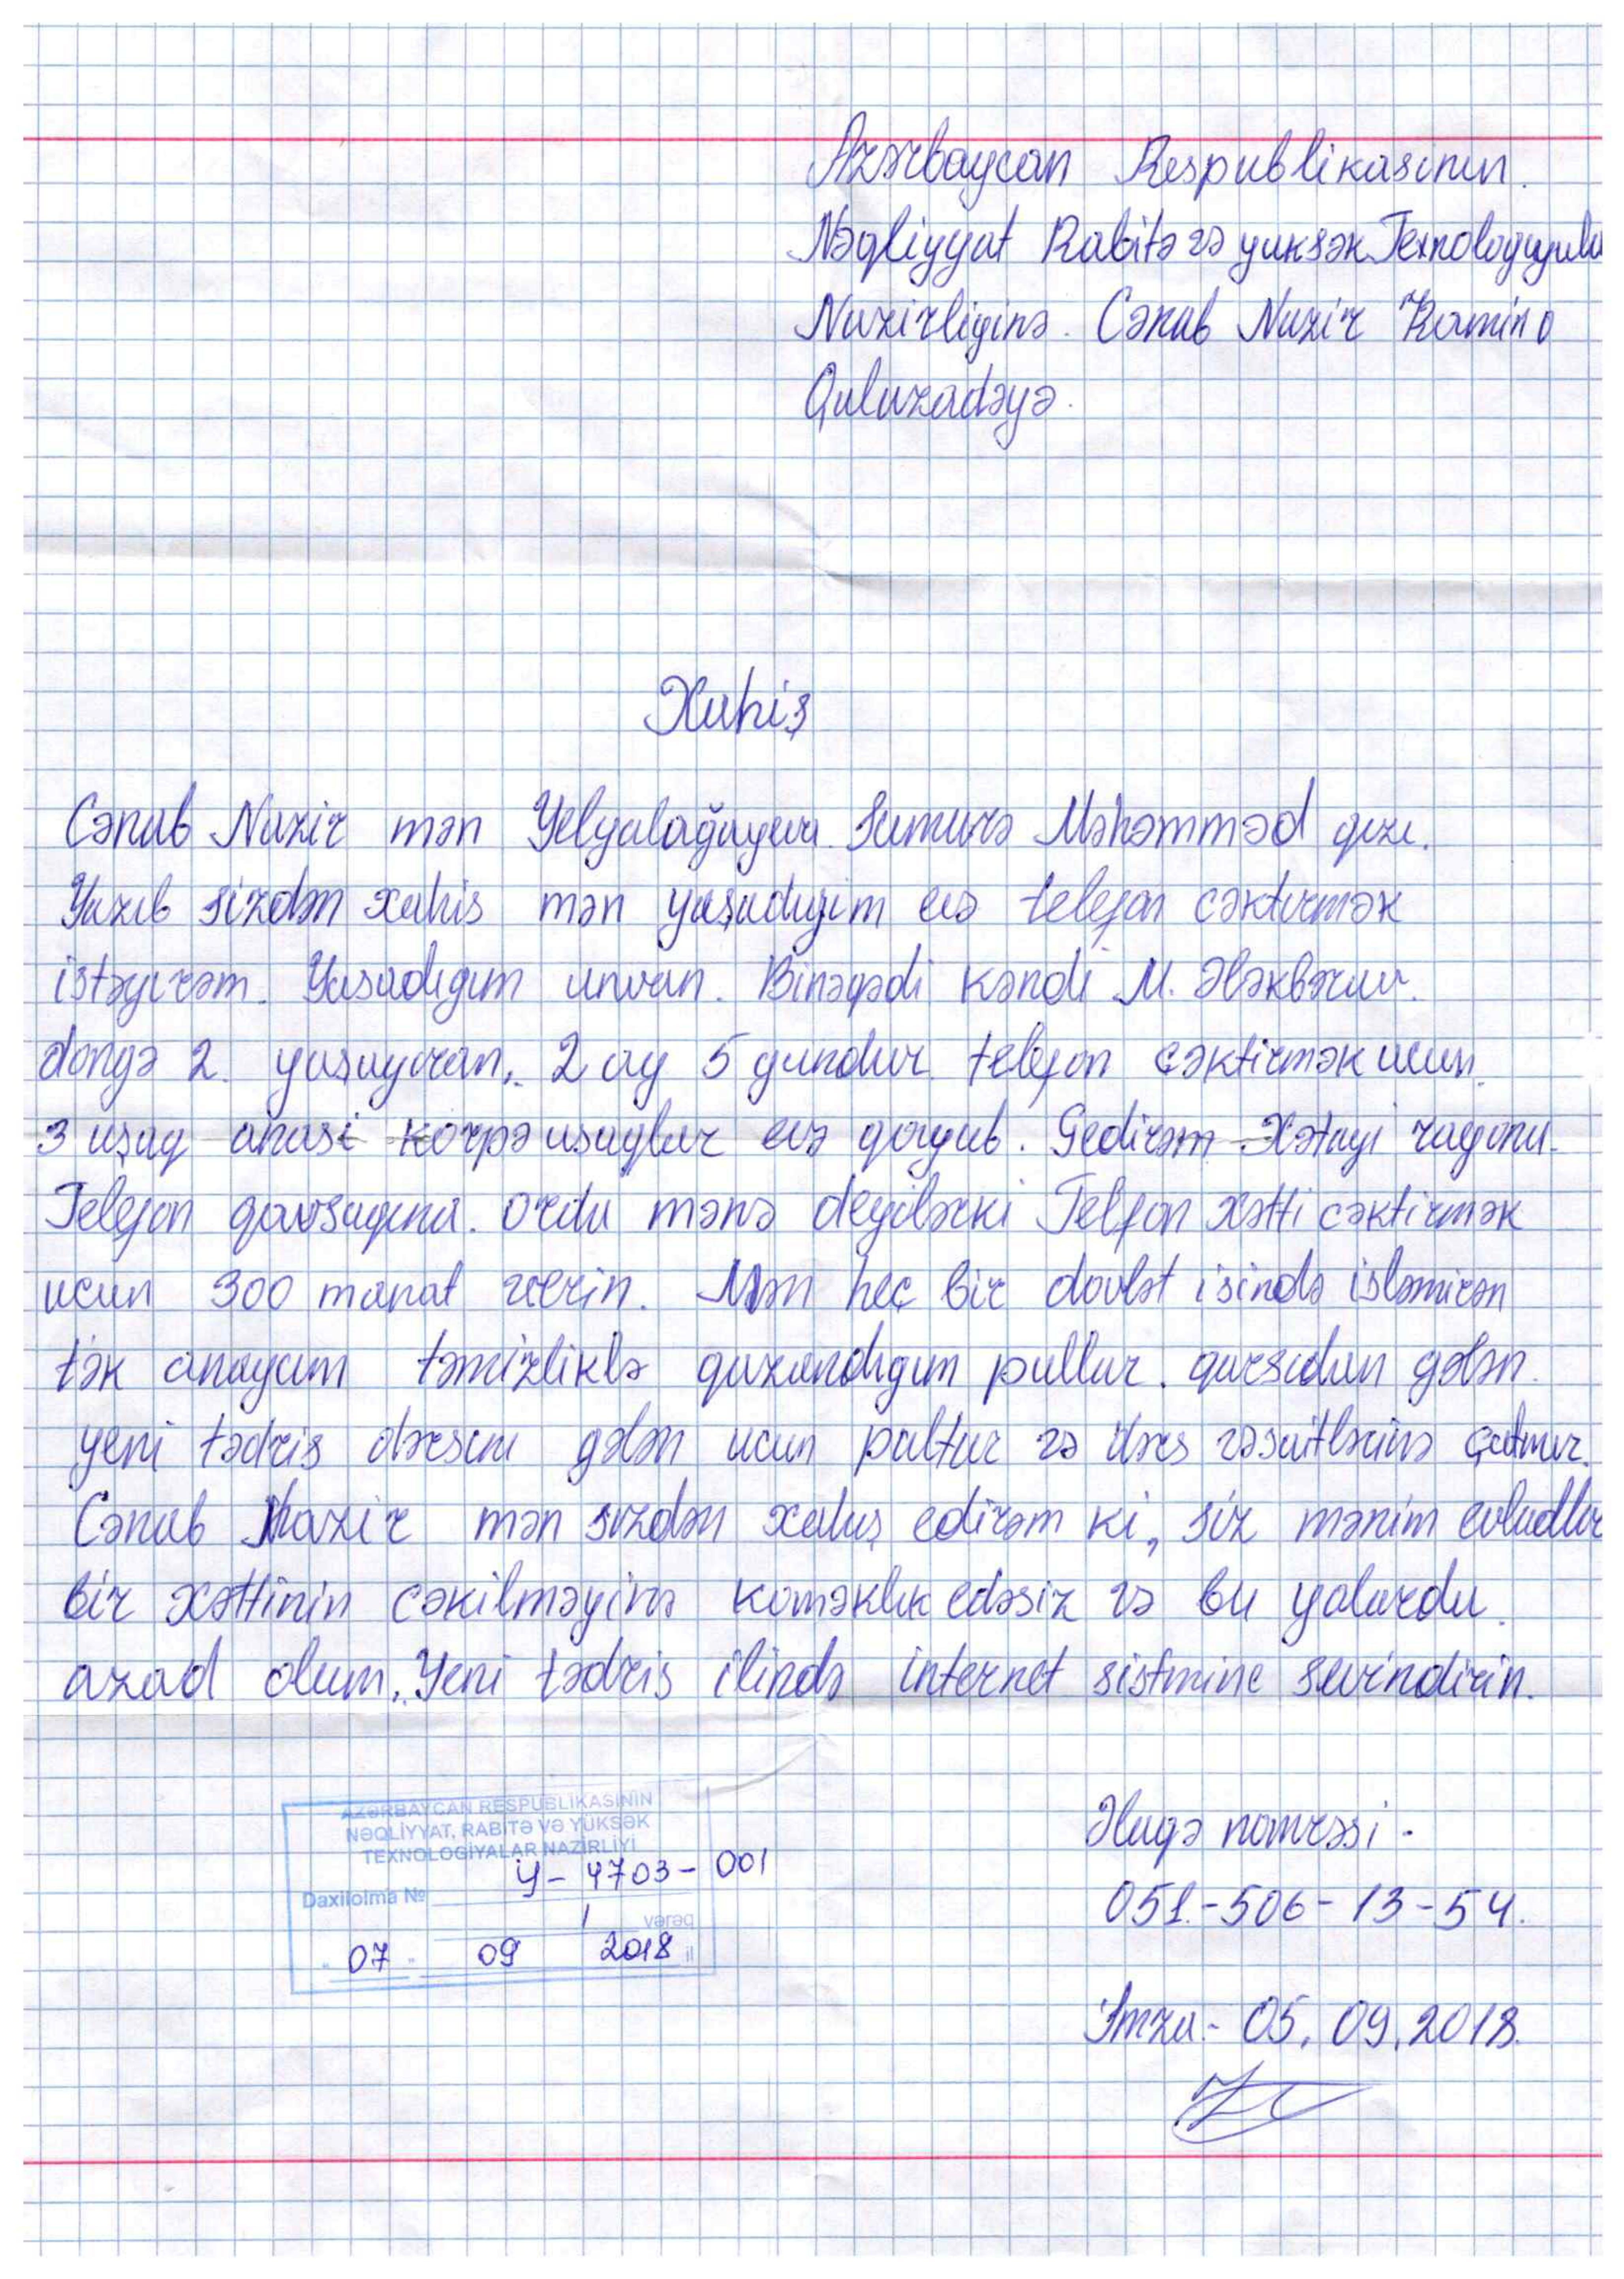 Azərbaycan Respublikasının.
Nəqliyyat Rabitə və yuksək Texnologiyala
Nazirliyinə. Cənab Nazir Ramin
Quluzadəyə.
Xahiş
Cənab Nazir mən Yelyalağayeva Samirə Məhəmməd qızı.
Yazıb sizdən xahis mən yaşadıyim evə telefon cəktırmək
istəyirəm. Yasadıgım unvan. Binəqədi kəndi M. Ələkbərov.
dongə 2. yaşayıram. 2 ay 5 gundur telefon çəktirmək ucun.
3 uşaq anasi korpə usaqlar evə qoyub. Gedirəm Xətayi rayonu.
Telefon qovsagına. Orda mənə deyilərki Telfon Xətti cəktirmək
ucun 300 manat verin. Mən heç bir dovlət isində isləmirən
tək anayam təmizliklə qazandıgım pullar. qarsıdan gələn.
yeni tədris dərsını gələn ucun paltar və dərs vəsaitlərinə çatmır.
Cənab Nazir mən sizdən xahış edirəm ki, siz mənim evladlar
bir xəttinin cəkilməyinə koməklık edəsiz və bu yolarda.
azad olum. Yeni tədris ilində internet sistmine sevindirin.
AZƏRBAYCAN RESPUBLİKASININ
NƏQLİYYAT, RABİTƏ VƏ YÜKSƏK
TEXNOLOGİYALAR NAZİRLİYİ
Daxilolma № Y-4703-001
1 vərəq
"07" 09 2018 il
Əlaqə nomrəsi -
051.-506-13-54.
Imza.- 05.09.2018.